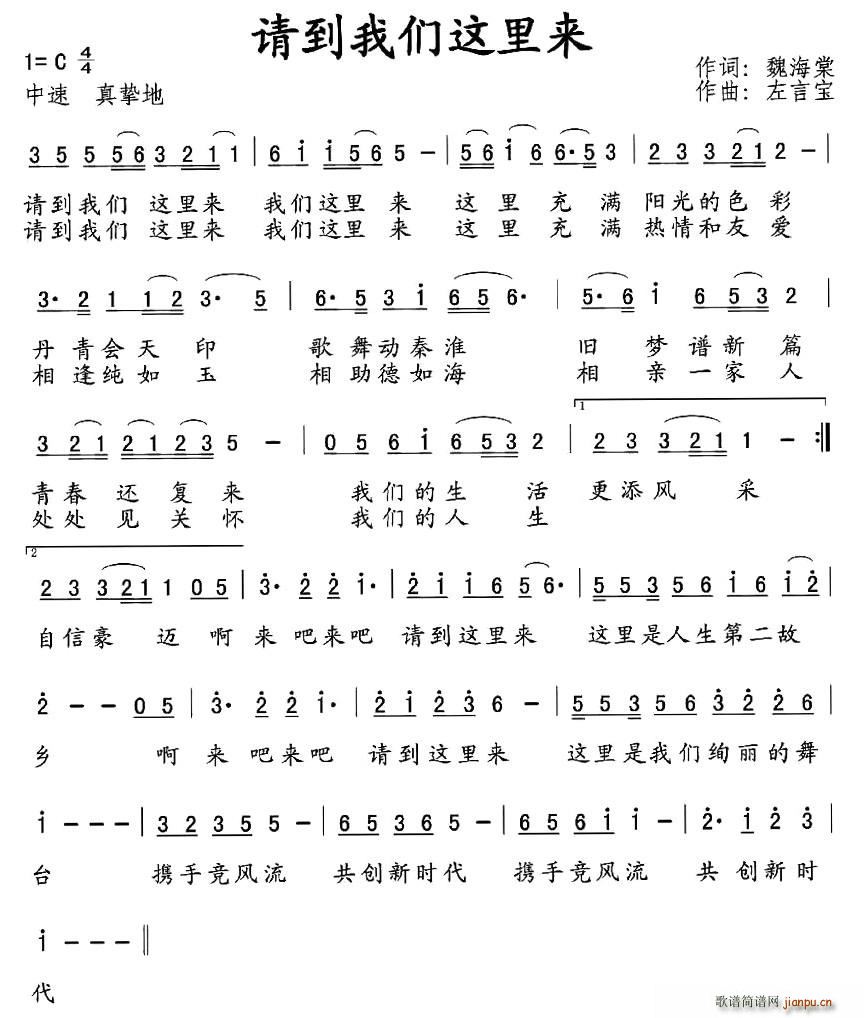 请到我们这里来
1=C 4/4
中速 真挚地
作词：魏海棠
作曲：左言宝
3 5 5 56 3 2 1 1 | 6 i i 5 6 5 － | 56 i 6 6·5 3 | 2 3 3 21 2 － |
请到我们 这里来 我们这里 来 这 里 充 满 阳光的色 彩
请到我们 这里来 我们这里 来 这 里 充 满 热情和友 爱
3· 2 1 12 3· 5 | 6· 5 3 i 65 6· | 5· 6 i 6 53 2 |
丹 青会天 印 歌 舞动秦淮 旧 梦 谱新 篇
相 逢纯如 玉 相 助德如海 相 亲 一家 人
3 21 21 23 5 － | 0 5 6 i 6 53 2 | 1 2 3 3 21 1 － :‖
青春 还 复 来 我们的生 活 更添风 采
处处 见 关 怀 我们的人 生
2
2 3 3 21 1 0 5 | 3· 2 2 i· | 2 i i 6 5 6· | 55 3 5 6 i 6 i 2 |
自信豪 迈 啊 来 吧来吧 请到这里来 这里是人生第二故
2 － － 0 5 | 3· 2 2 i· | 2 i 2 3 6 － | 55 3 5 6 3 2 2 6 |
乡 啊 来 吧来吧 请到这里来 这里是我们绚丽的舞
i － － － | 3 2 3 5 5 － | 6 5 3 6 5 － | 6 5 6 i i － | 2· i 2 3 |
台 携手竞风流 共创新时代 携手竞风流 共 创新时
i － － － ‖
代
歌谱简谱网 jianpu.cn